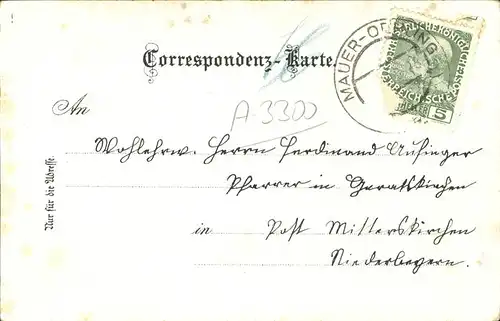 Correspondenz-Karte.
MAUER-OEHLING
KAISERLICHE KÖNIGLICHE
ÖSTERREICHISCHE POST
5
A.3300
An
Wohlehrw. Herrn Ferdinand Aufinger
Pfarrer in Geratskirchen
in Post Mitterskirchen
Niederbayern.
Nur für die Adresse.